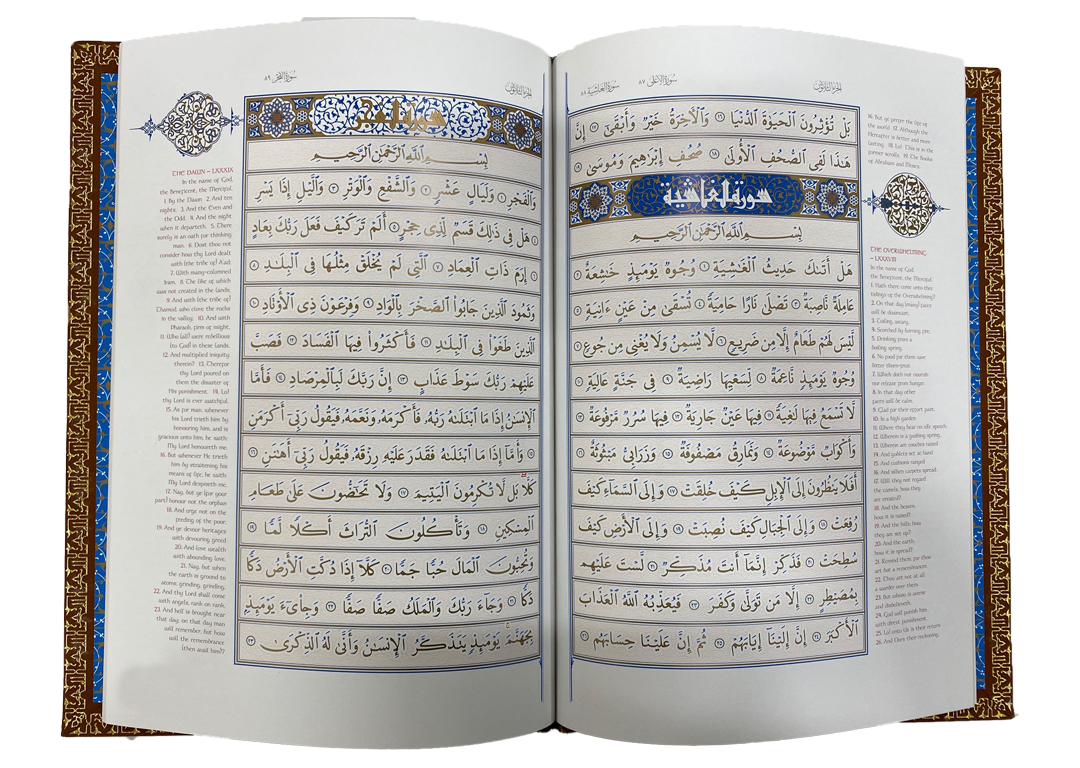 الجزء الثلاثون
سورة الأعلى ٨٧
سورة الغاشية ٨٨
بَلْ تُؤْثِرُونَ الْحَيَوٰةَ الدُّنْيَا ١٦ وَالْأٓخِرَةُ خَيْرٌ وَأَبْقَىٰٓ ١٧ إِنَّ
هَٰذَا لَفِى الصُّحُفِ الْأُولَىٰ ١٨ صُحُفِ إِبْرَٰهِيمَ وَمُوسَىٰ
سورة الغاشية
بِسْمِ اللَّهِ الرَّحْمَٰنِ الرَّحِيمِ
هَلْ أَتَىٰكَ حَدِيثُ الْغَٰشِيَةِ ١ وُجُوهٌ يَوْمَئِذٍ خَٰشِعَةٌ ٢
عَامِلَةٌ نَّاصِبَةٌ ٣ تَصْلَىٰ نَارًا حَامِيَةً ٤ تُسْقَىٰ مِنْ عَيْنٍ ءَانِيَةٍ ٥
لَّيْسَ لَهُمْ طَعَامٌ إِلَّا مِن ضَرِيعٍ ٦ لَّا يُسْمِنُ وَلَا يُغْنِى مِن جُوعٍ ٧
وُجُوهٌ يَوْمَئِذٍ نَّاعِمَةٌ ٨ لِّسَعْيِهَا رَاضِيَةٌ ٩ فِى جَنَّةٍ عَالِيَةٍ ١٠
لَّا تَسْمَعُ فِيهَا لَٰغِيَةً ١١ فِيهَا عَيْنٌ جَارِيَةٌ ١٢ فِيهَا سُرُرٌ مَّرْفُوعَةٌ ١٣
وَأَكْوَابٌ مَّوْضُوعَةٌ ١٤ وَنَمَارِقُ مَصْفُوفَةٌ ١٥ وَزَرَابِىُّ مَبْثُوثَةٌ ١٦
أَفَلَا يَنظُرُونَ إِلَى الْإِبِلِ كَيْفَ خُلِقَتْ ١٧ وَإِلَى السَّمَآءِ كَيْفَ
رُفِعَتْ ١٨ وَإِلَى الْجِبَالِ كَيْفَ نُصِبَتْ ١٩ وَإِلَى الْأَرْضِ كَيْفَ
سُطِحَتْ ٢٠ فَذَكِّرْ إِنَّمَآ أَنتَ مُذَكِّرٌ ٢١ لَّسْتَ عَلَيْهِم
بِمُصَيْطِرٍ ٢٢ إِلَّا مَن تَوَلَّىٰ وَكَفَرَ ٢٣ فَيُعَذِّبُهُ اللَّهُ الْعَذَابَ
الْأَكْبَرَ ٢٤ إِنَّ إِلَيْنَآ إِيَابَهُمْ ٢٥ ثُمَّ إِنَّ عَلَيْنَا حِسَابَهُم ٢٦
16. But ye prefer the life of
the world 17. Although the
Hereafter is better and more
lasting. 18. Lo! This is in the
former scrolls. 19. The Books
of Abraham and Moses.
THE OVERWHELMING
– LXXXVIII
In the name of God,
the Beneficent, the Merciful.
1. Hath there come unto thee
tidings of the Overwhelming?
2. On that day (many) faces
will be downcast,
3. Toiling, weary,
4. Scorched by burning fire,
5. Drinking from a
boiling spring,
6. No food for them save
bitter thorn-fruit
7. Which doth not nourish
nor release from hunger.
8. In that day other
faces will be calm,
9. Glad for their effort past,
10. In a high garden
11. Where they hear no idle speech,
12. Wherein is a gushing spring,
13. Wherein are couches raised
14. And goblets set at hand
15. And cushions ranged
16. And silken carpets spread.
17. Will they not regard
the camels, how they
are created?
18. And the heaven,
how it is raised?
19. And the hills, how
they are set up?
20. And the earth,
how it is spread?
21. Remind them, for thou
art but a remembrancer,
22. Thou art not at all
a warder over them.
23. But whoso is averse
and disbelieveth,
24. God will punish him
with direst punishment.
25. Lo! unto Us is their return
26. And Ours their reckoning.
الجزء الثلاثون
سورة الفجر ٨٩
سورة الفجر
بِسْمِ اللَّهِ الرَّحْمَٰنِ الرَّحِيمِ
وَالْفَجْرِ ١ وَلَيَالٍ عَشْرٍ ٢ وَالشَّفْعِ وَالْوَتْرِ ٣ وَالَّيْلِ إِذَا يَسْرِ
٤ هَلْ فِى ذَٰلِكَ قَسَمٌ لِّذِى حِجْرٍ ٥ أَلَمْ تَرَ كَيْفَ فَعَلَ رَبُّكَ بِعَادٍ
٦ إِرَمَ ذَاتِ الْعِمَادِ ٧ الَّتِى لَمْ يُخْلَقْ مِثْلُهَا فِى الْبِلَٰدِ ٨
وَثَمُودَ الَّذِينَ جَابُوا الصَّخْرَ بِالْوَادِ ٩ وَفِرْعَوْنَ ذِى الْأَوْتَادِ ١٠
الَّذِينَ طَغَوْا فِى الْبِلَٰدِ ١١ فَأَكْثَرُوا فِيهَا الْفَسَادَ ١٢ فَصَبَّ
عَلَيْهِمْ رَبُّكَ سَوْطَ عَذَابٍ ١٣ إِنَّ رَبَّكَ لَبِالْمِرْصَادِ ١٤ فَأَمَّا
الْإِنسَٰنُ إِذَا مَا ابْتَلَىٰهُ رَبُّهُ فَأَكْرَمَهُ وَنَعَّمَهُ فَيَقُولُ رَبِّىٓ أَكْرَمَنِ
١٥ وَأَمَّآ إِذَا مَا ابْتَلَىٰهُ فَقَدَرَ عَلَيْهِ رِزْقَهُ فَيَقُولُ رَبِّىٓ أَهَٰنَنِ ١٦
كَلَّا بَل لَّا تُكْرِمُونَ الْيَتِيمَ ١٧ وَلَا تَحَٰٓضُّونَ عَلَىٰ طَعَامِ
الْمِسْكِينِ ١٨ وَتَأْكُلُونَ التُّرَاثَ أَكْلًا لَّمًّا ١٩
وَتُحِبُّونَ الْمَالَ حُبًّا جَمًّا ٢٠ كَلَّآ إِذَا دُكَّتِ الْأَرْضُ دَكًّا
دَكًّا ٢١ وَجَآءَ رَبُّكَ وَالْمَلَكُ صَفًّا صَفًّا ٢٢ وَجِا۟ىٓءَ يَوْمَئِذٍ
بِجَهَنَّمَ يَوْمَئِذٍ يَتَذَكَّرُ الْإِنسَٰنُ وَأَنَّىٰ لَهُ الذِّكْرَىٰ ٢٣
THE DAWN – LXXXIX
In the name of God,
the Beneficent, the Merciful.
1. By the Dawn 2. And ten
nights, 3. And the Even and
the Odd, 4. And the night
when it departeth, 5. There
surely is an oath for thinking
man. 6. Dost thou not
consider how thy Lord dealt
with (the tribe of) A'ad;
7. With many-columned
Iram, 8. The like of which
was not created in the lands;
9. And with (the tribe of)
Thamud, who clove the rocks
in the valley; 10. And with
Pharaoh, firm of might,
11. Who (all) were rebellious
(to God) in these lands,
12. And multiplied iniquity
therein? 13. Therefore
thy Lord poured on
them the disaster of
His punishment. 14. Lo!
thy Lord is ever watchful.
15. As for man, whenever
his Lord trieth him by
honouring him, and is
gracious unto him, he saith:
My Lord honoureth me.
16. But whenever He trieth
him by straitening his
means of life, he saith:
My Lord despiseth me.
17. Nay, but ye (for your
part) honour not the orphan
18. And urge not on the
feeding of the poor,
19. And ye devour heritages
with devouring greed
20. And love wealth
with abounding love.
21. Nay, but when
the earth is ground to
atoms, grinding, grinding,
22. And thy Lord shall come
with angels, rank on rank,
23. And hell is brought near
that day; on that day man
will remember, but how
will the remembrance
(then avail him)?